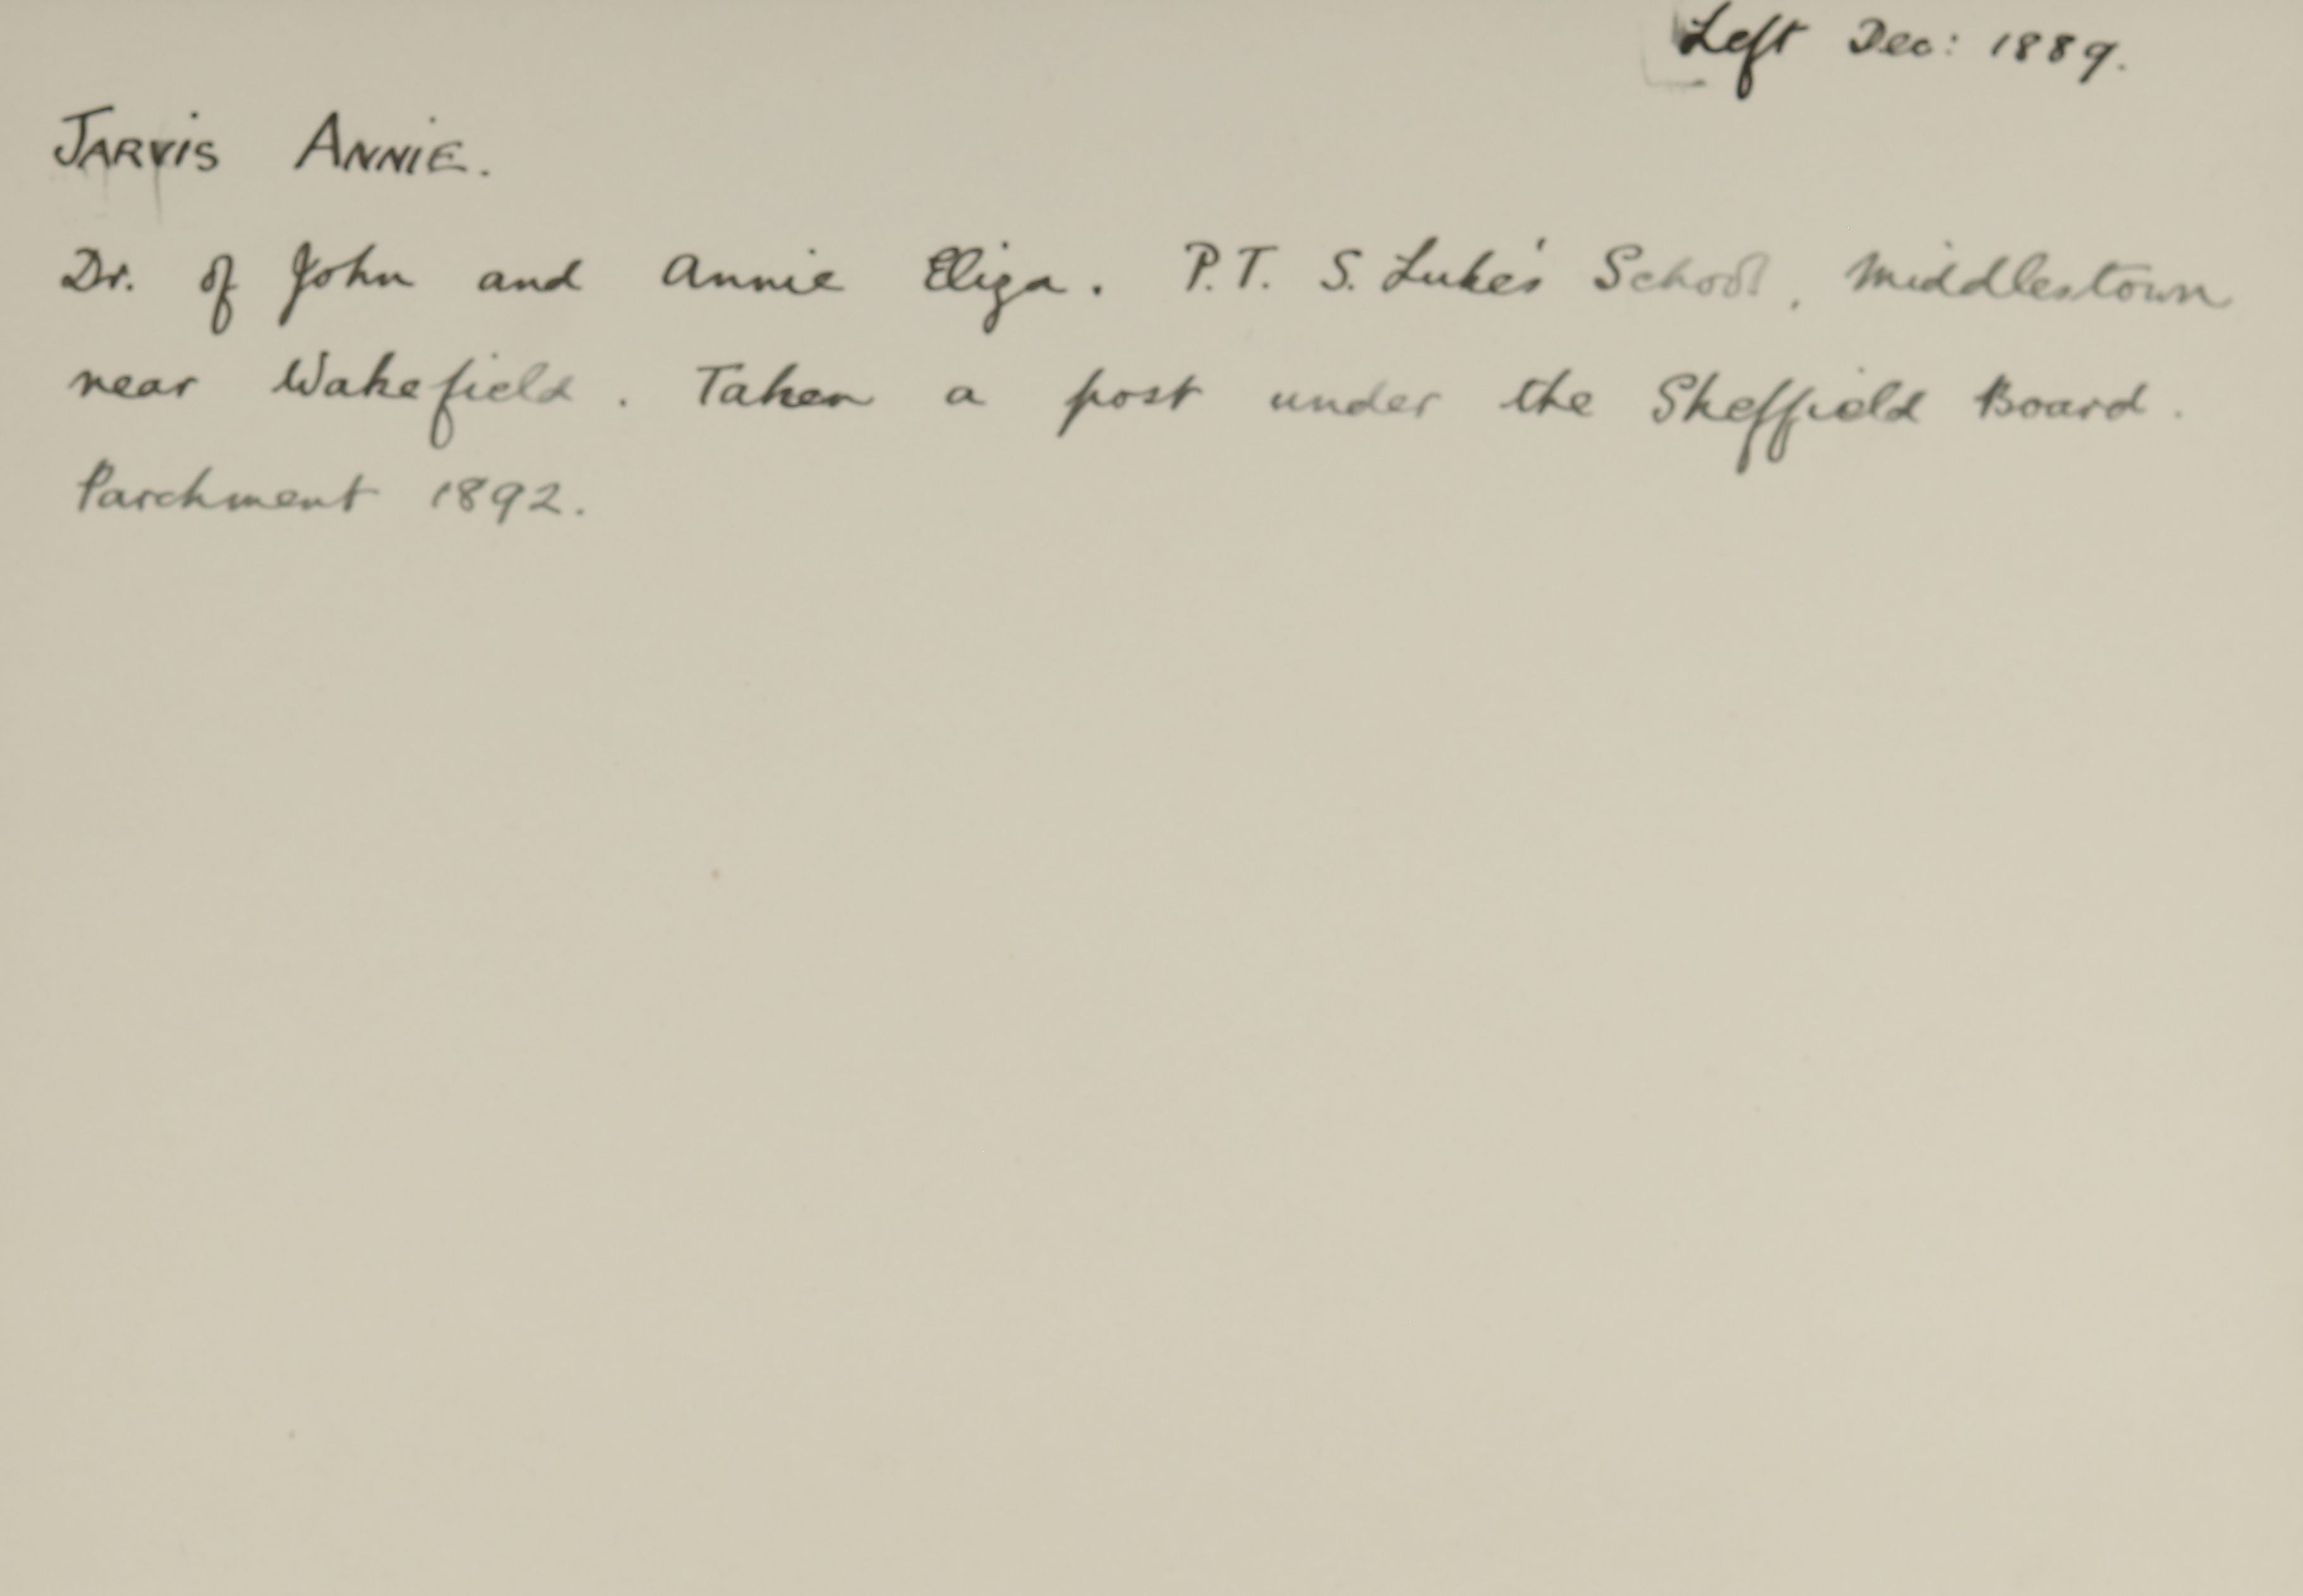 Left Dec: 1889.
JARVIS ANNIE.
Dr. of John and Annie Eliza. P.T. S. Luke's School, Middlestown
near Wakefield. Taken a post under the Sheffield Board.
Parchment 1892.